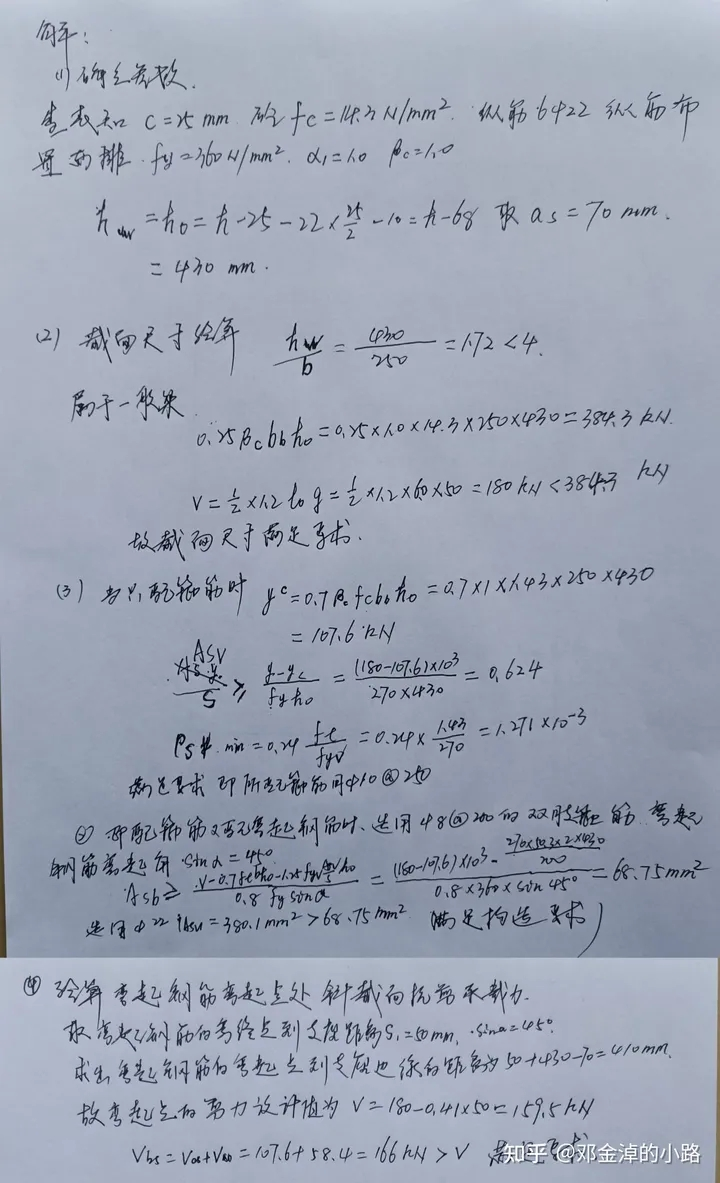 解:
(1)确定参数.
查表知 c=25 mm. 砼 fc=14.3N/mm². 纵筋6Φ22 纵筋布
置两排. fy=360N/mm². α₁=1.0 βc=1.0
hw=h0=h-25-22×25/2-10=h-68 取 as=70 mm.
=430 mm.
(2) 截面尺寸验算 hw/b=430/250=1.72<4.
属于一般梁.
0.25βcbh0=0.25×1.0×14.3×250×430=384.3 kN.
V=1/2×1.2l0g=1/2×1.2×60×50=180kN<384.3 kN
故截面尺寸满足要求.
(3) 当只配箍筋时 yc=0.7βcfcbh0=0.7×1×1.43×250×430
=107.6kN
Asv/S≥(y-yc)/(fyh0)=((180-107.6)×10³)/(270×430)=0.624
min=0.24 ft/fyv=0.24×1.43/270=1.271×10⁻³
满足要求 即所配箍筋用Φ10@250
② 即配箍筋又配弯起钢筋时、选用Φ8@200的双肢箍筋. 弯起
钢筋弯起角 sinα=45°
Asb≥(V-0.7ftbh0-1.25fyv h0)/(0.8fysinα)=((180-107.6)×10³-(270×50.3×2×430)/200)/(0.8×360×sin45°)=68.75mm²
选用Φ22 =380.1mm²>68.75mm² 满足构造要求
④ 验算弯起钢筋弯起点处斜截面抗剪承载力.
取弯起钢筋的弯终点到支座距离S₁=50mm, sinα=45°.
求出弯起钢筋的弯起点到支座边缘的距离为50+430-70=410mm.
故弯起点的剪力设计值为 V=180-0.41×50=159.5kN
=107.6+58.4=166kN>V 满足要求
知乎 @邓金淖的小路